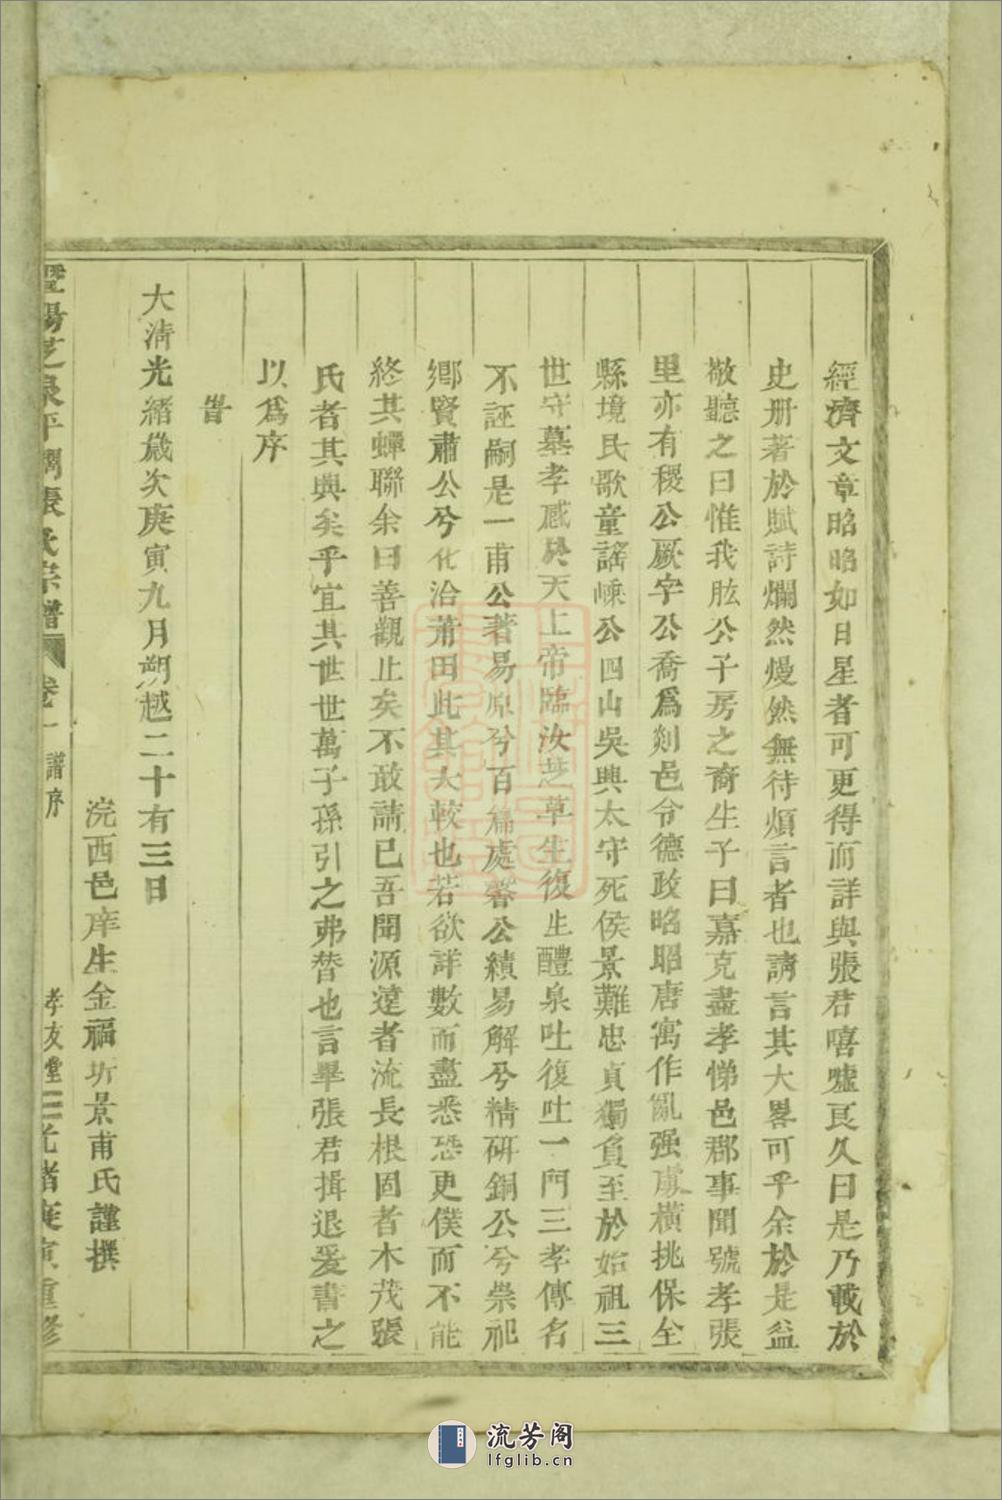 經濟文章昭昭如日星者可更得而詳與張君嘻噓良久曰是乃載於
史册著於賦詩爛然熳然無待煩言者也請言其大畧可乎余於是益
敬聽之曰惟我肱公子房之裔生子曰嘉克盡孝悌邑郡事聞號孝張
里亦有稷公厥字公喬爲剡邑令德政昭昭唐寓作亂强虞橫挑保全
縣境民歌童謠嵊公四山吳興太守死侯景難忠貞獨負至於始祖三
世守墓孝感於天上帝臨汝芝草生復生醴泉吐復吐一門三孝傳名
不誣嗣是一甫公著易原兮百篇處馨公續易解兮精研銅公兮崇祀
鄉賢肅公兮化洽莆田此其大較也若欲詳數而盡悉恐更僕而不能
終其蟬聯余曰善觀止矣不敢請已吾聞源遠者流長根固者木茂張
氏者其與矣乎宜其世世萬子孫引之弗替也言畢張君揖退爰書之
以爲序
旹
大清光緒歲次庚寅九月朔越二十有三日
浣西邑庠生金福圻景甫氏謹撰
暨陽芝泉平闊張氏宗譜 卷一 譜序 孝友堂 光緒庚寅重修
流芳阁
lfglib.cn